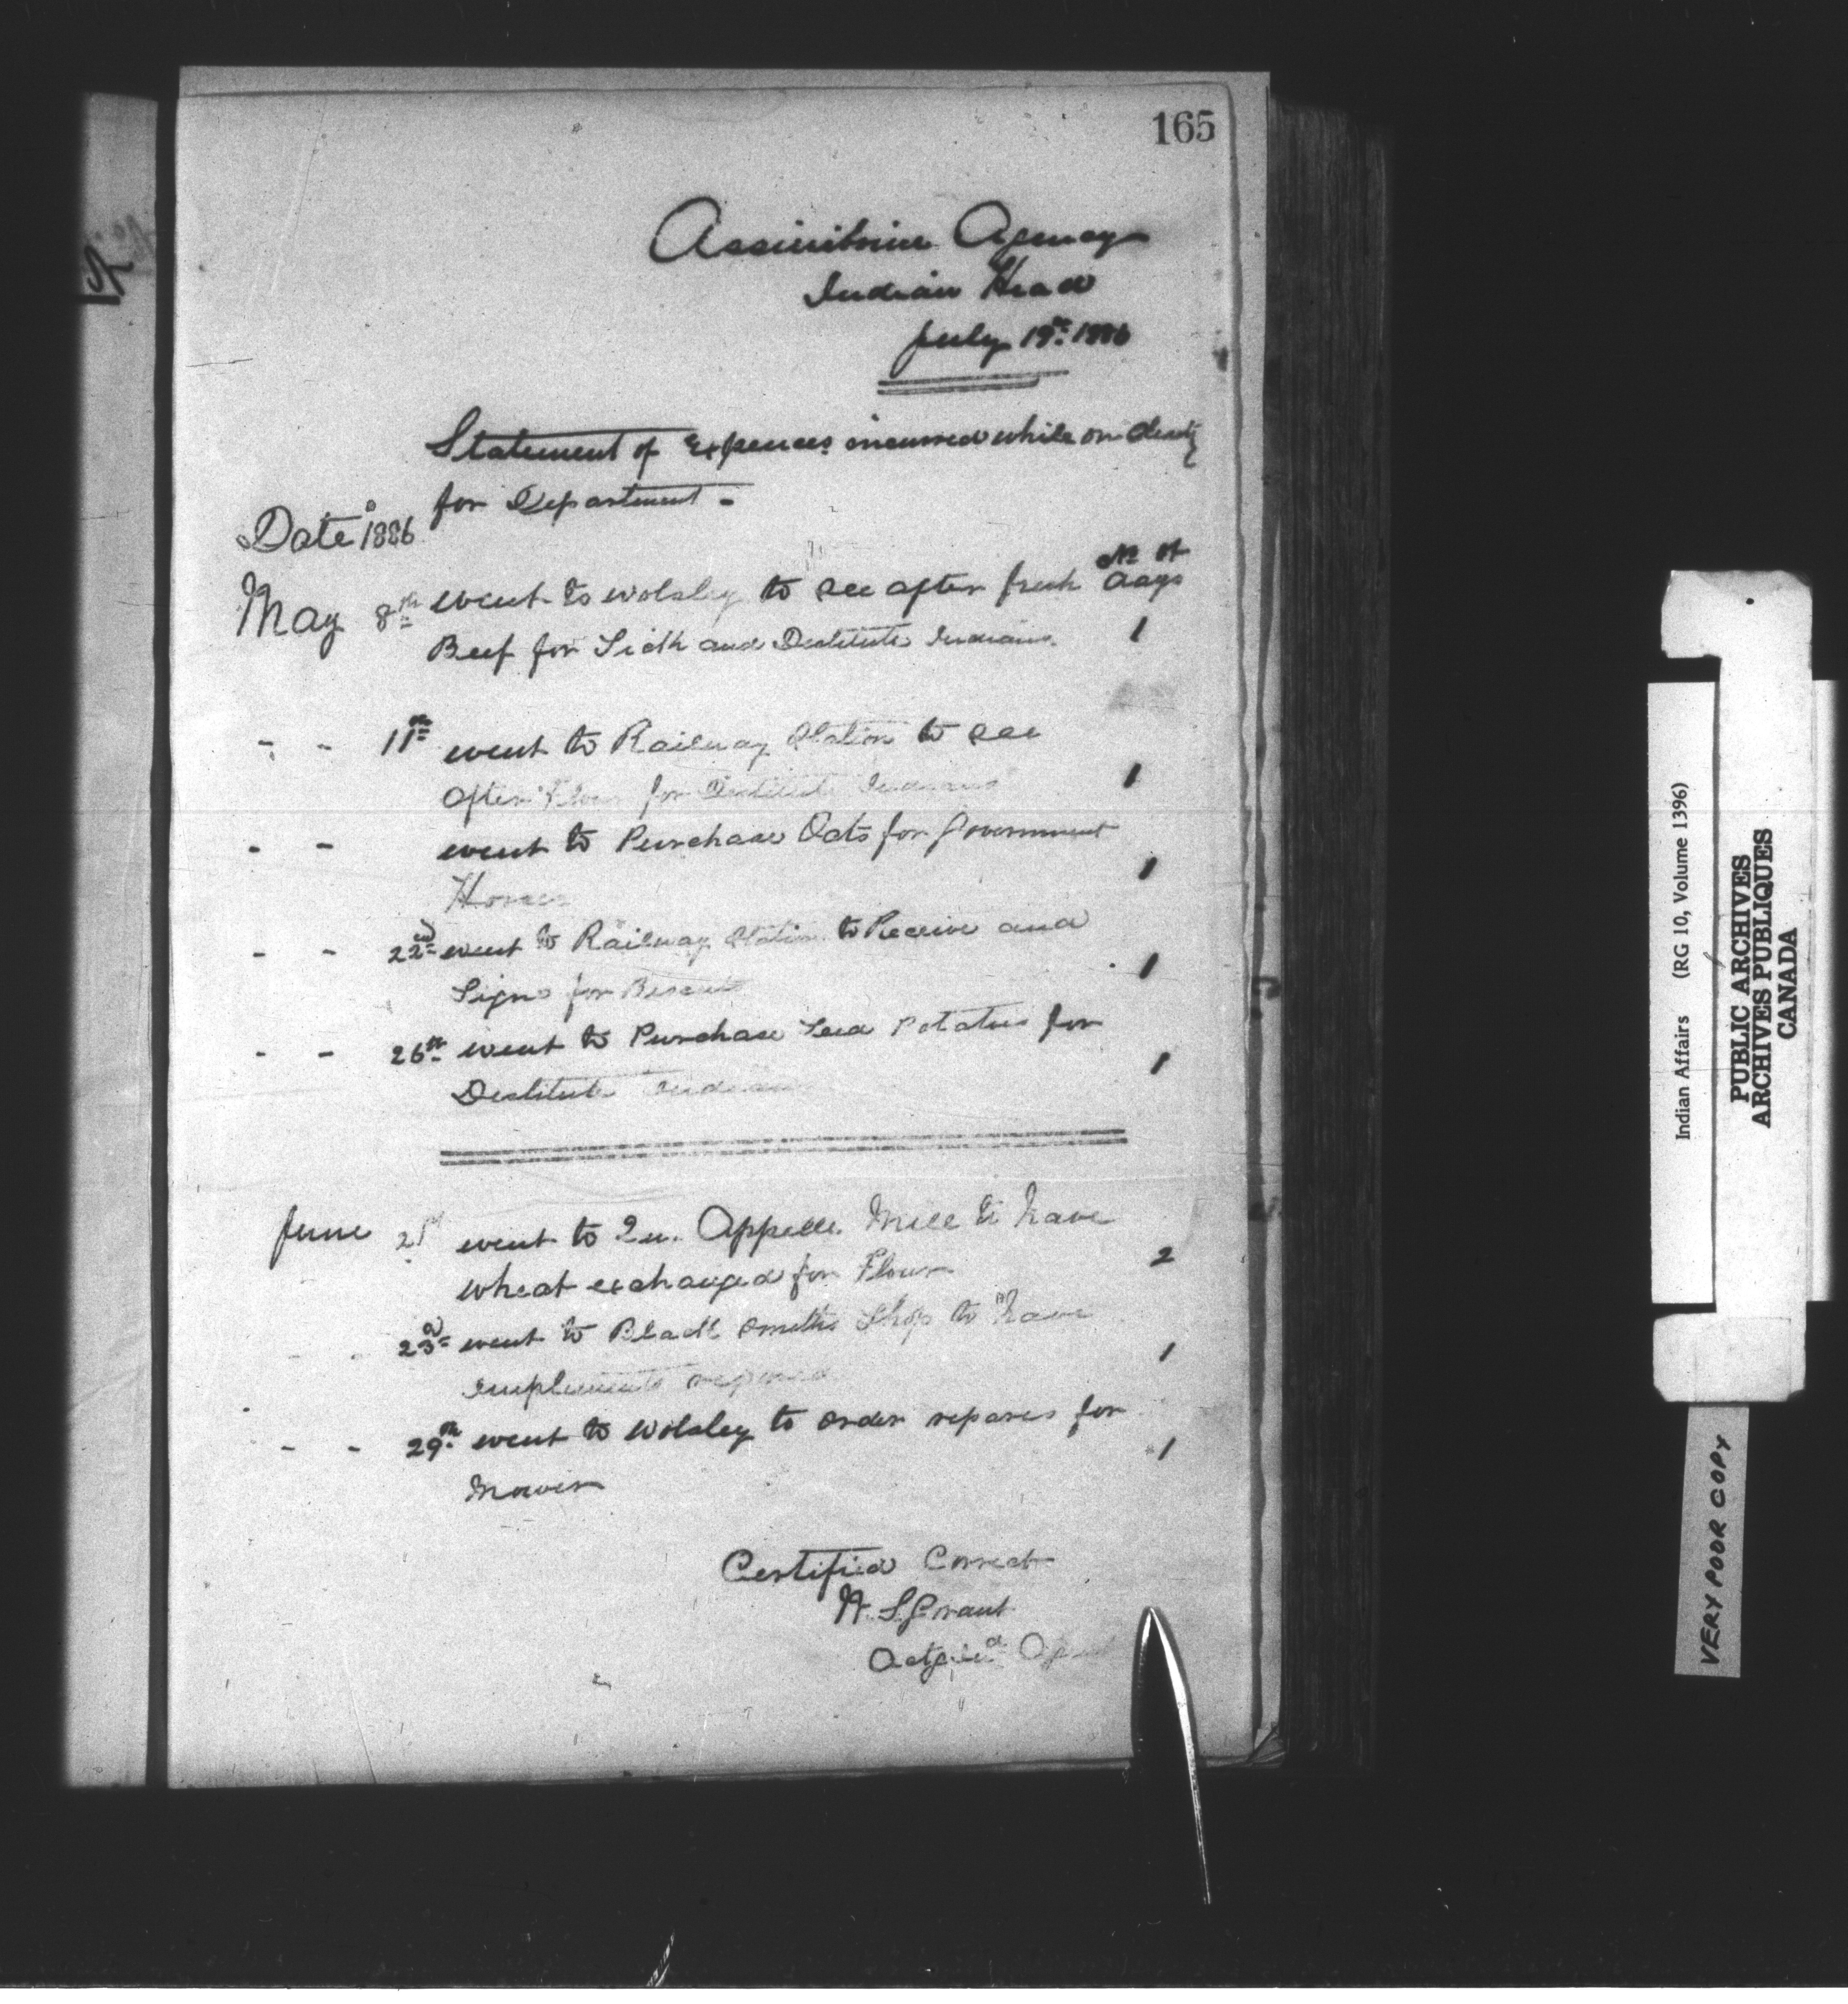 165
Assiniboine Agency
Indian Head
July 19th 1886
Statement of Expences incurred while on duty
for Department -
Date 1886
No of
May 8th went to Wolsley to see after fresh days
Beef for Sick and Destitute Indians. 1
- - 11th went to Railway Station to see
after Flour for Destitute Indians 1
- - went to Purchase Oats for Government
Horses 1
- - 22nd went to Railway Station to Receive and
Sign for Biscuits 1
- - 26th went to Purchase Seed Potatoes for
Destitute Indians 1
June 21st went to Qu. Appelle Mill to have
wheat exchanged for Flour 2
23d went to Black smiths Shop to have
implements 1
- - 29th went to Wolsley to order repares for
Mower 1
Certified Correct
W. S. Grant
Indian Affairs (RG 10, Volume 1396)
PUBLIC ARCHIVES
ARCHIVES PUBLIQUES
CANADA
VERY POOR COPY